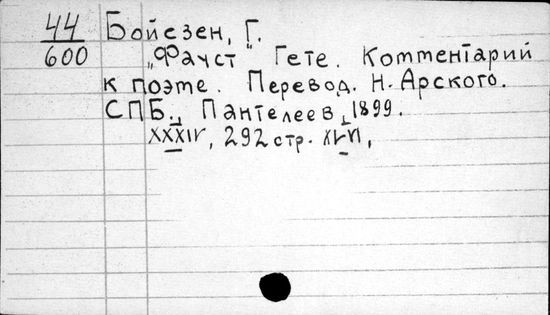 44 Бойезен, Г.
600 „Фауст" Гете. Комментарий
к поэте. Перевод. Н. Арского.
СПБ., Пантелеев, 1899.
XXXIV, 292 стр. XVI,